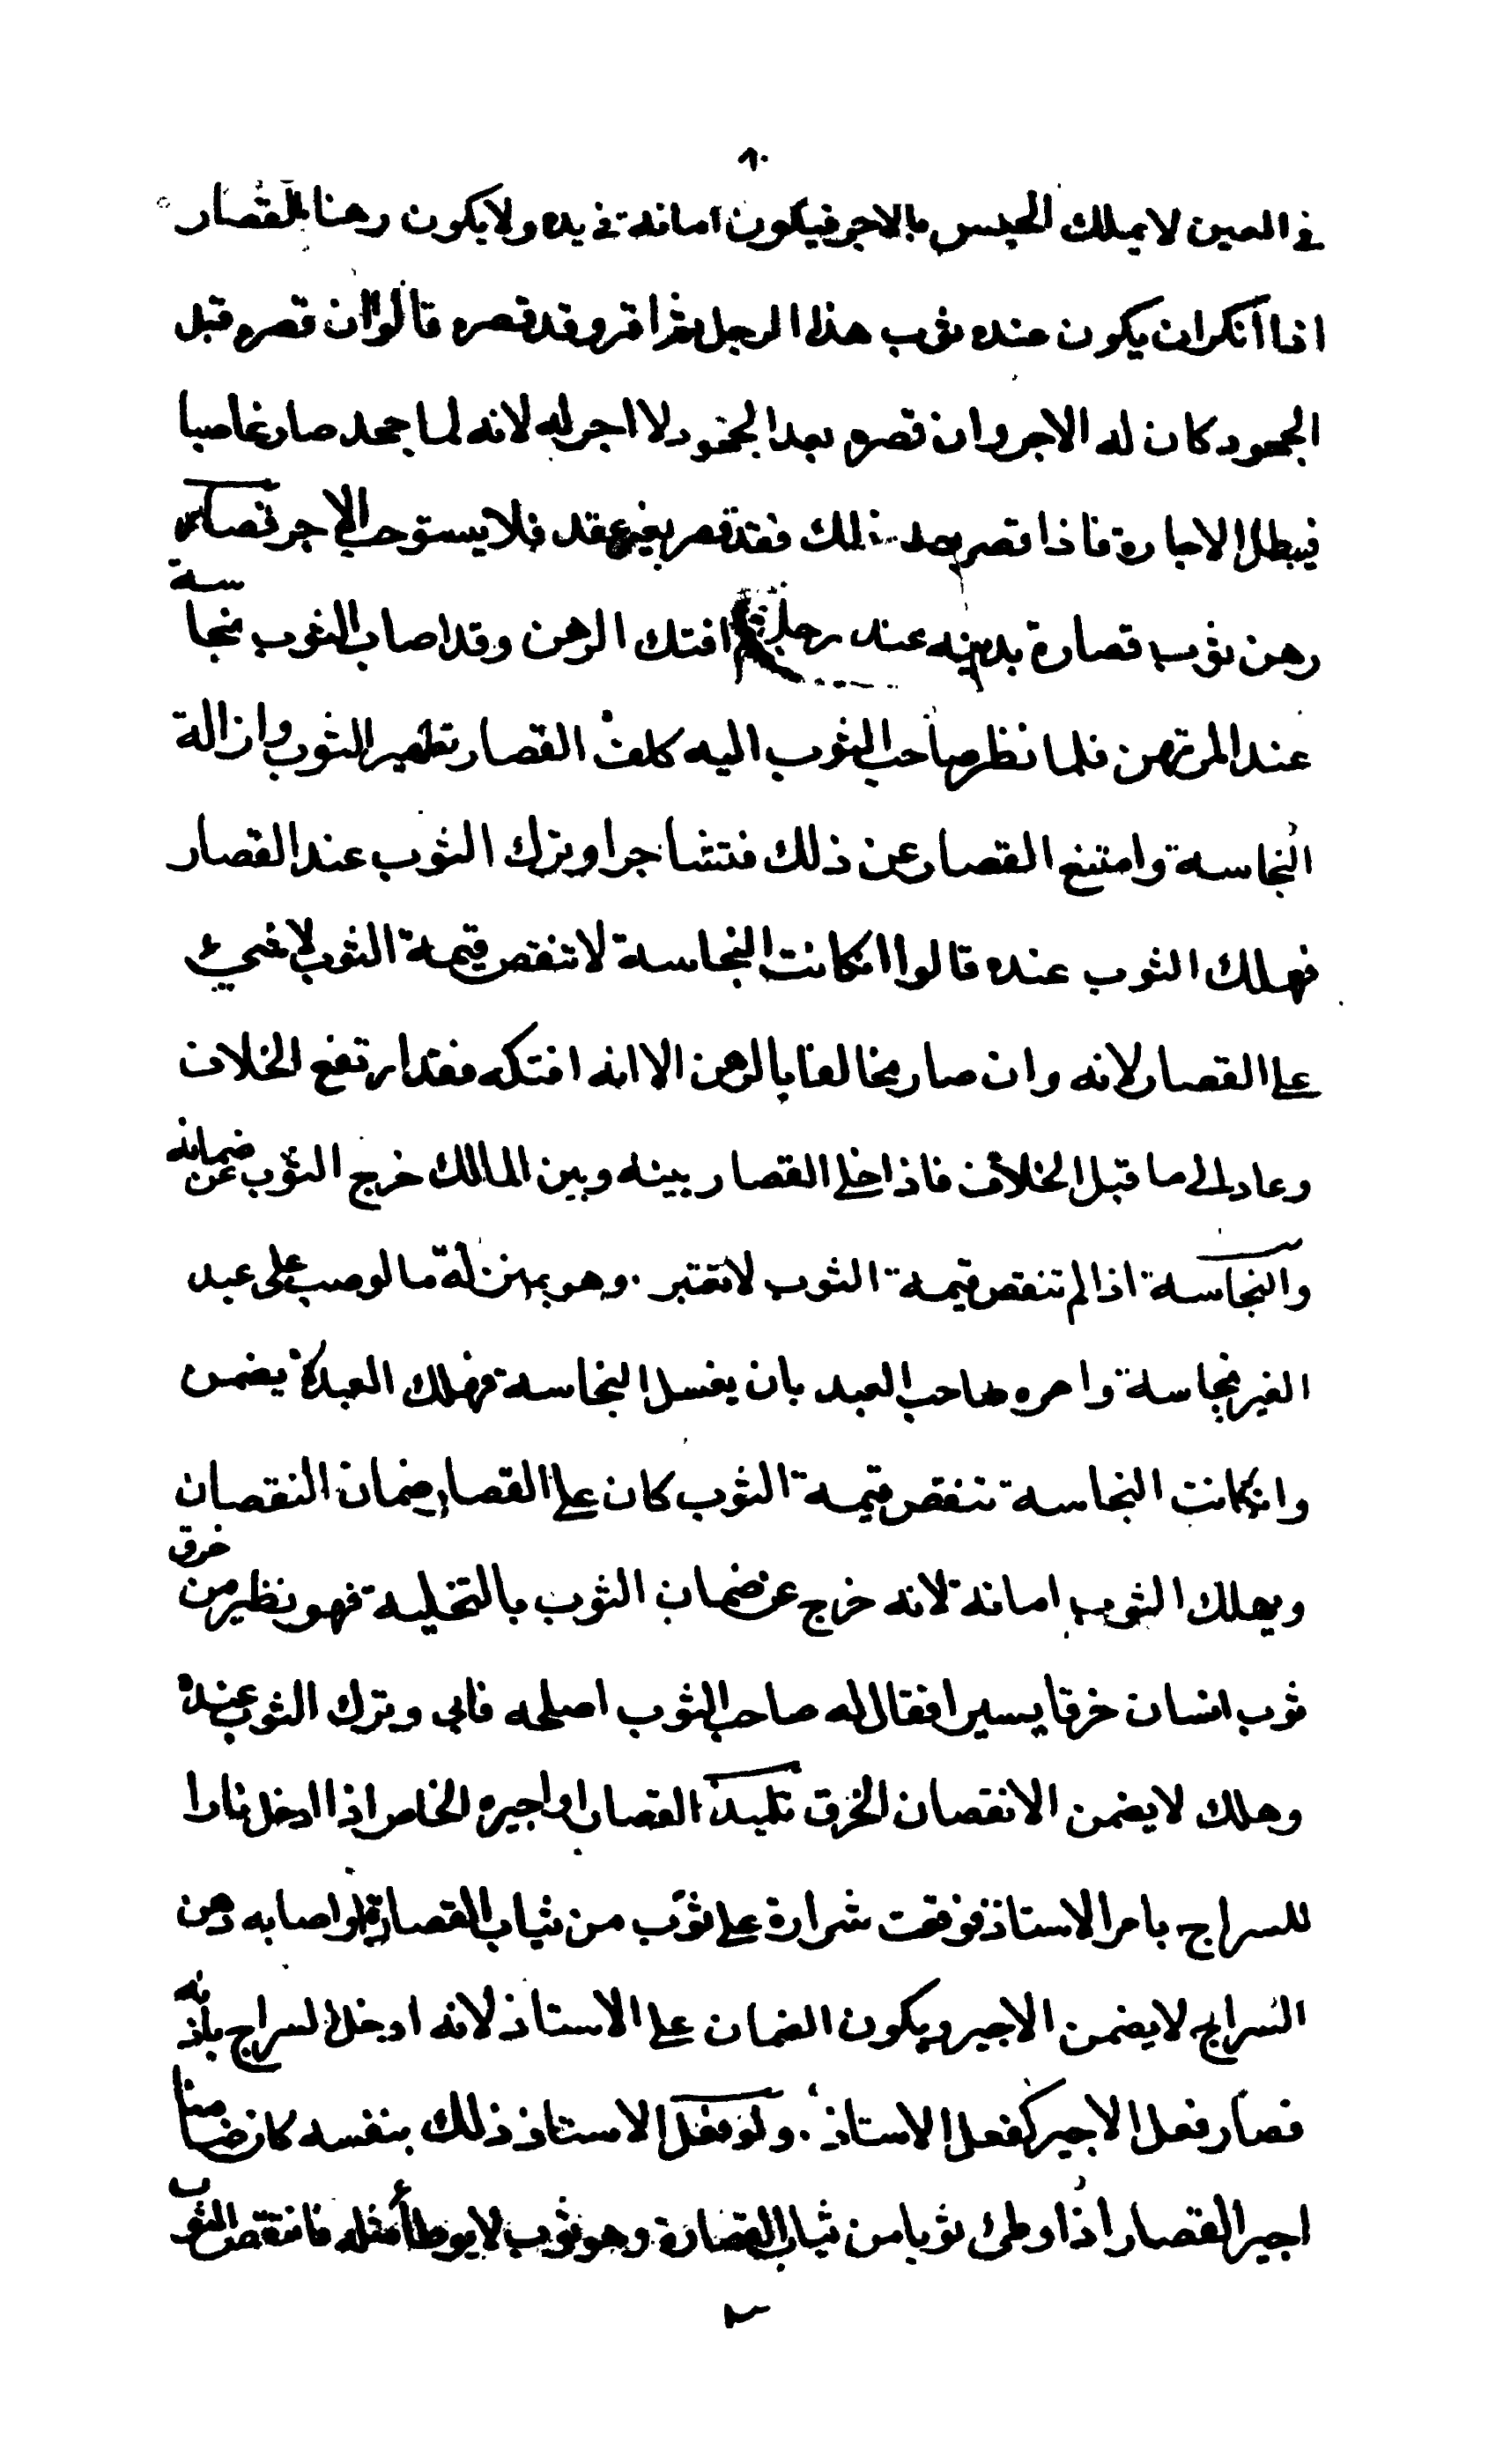 ٨٠
في العين لا يملك الحبس بالاجر فيكون امانة في يده ولا يكون رهنا القصار
اذا انكران يكون عنده ثوب هذا الرجل ثم اقر وقد قصره قالوا ان قصره قبل
الجحود كان له الاجر وان قصره بعد الجحود لا اجر له لانه لما جحد صار غاصبا
فيبطل الاجارة فاذا قصر بعد ذلك فقد قصر بغير عقد فلا يستوجب الاجر قصار
رهن ثوب قصارة بدينه عند رجل ثم افتك الرهن وقد اصاب الثوب نجاسة
عند المرتهن فلما نظر صاحب الثوب اليه كلف القصار تطهير الثوب وازالة
النجاسة وامتنع القصار عن ذلك فتشاجرا وترك الثوب عند القصار
فهلك الثوب عنده قالوا انكانت النجاسة لا تنقص قيمة الثوب لا شيء
على القصار لانه وان صار مخالفا بالرهن الا انه افتكه فقد ارتفع الخلاف
وعاد الى ما قبل الخلاف فاذا خلى القصار بينه وبين المالك خرج الثوب عن ضمانه
والنجاسة اذا لم تنقص قيمة الثوب لا تعتبر . وهو بمنزلة ما لو صب على عبد
الغير نجاسة وامره صاحب العبد بان يغسل النجاسة فهلك العبد لا يضمن
وانكانت النجاسة تنقص قيمة الثوب كان على القصار ضمان النقصان
ويهلك الثوب امانة لانه خرج عن ضمان الثوب بالتخلية فهو نظير من خرق
ثوب انسان خرقا يسيرا فقال له صاحب الثوب اصلحه فابى وترك الثوب عنده
وهلك لا يضمن الا نقصان الخرق تلميذ القصار او اجيره الخاص اذا ادخل نارا
للسراج بامر الاستاذ فوقعت شرارة على ثوب من ثياب القصارة او اصابه دهن
السراج لا يضمن الاجير ويكون الضمان على الاستاذ لانه ادخل السراج باذنه
فصار فعل الاجير كفعل الاستاذ . ولو فعل الاستاذ ذلك بنفسه كان ضامنا
اجير القصار اذا وطئ ثوبا من ثياب القصارة وهو ثوب لا يوطأ مثله فانتقص الثوب